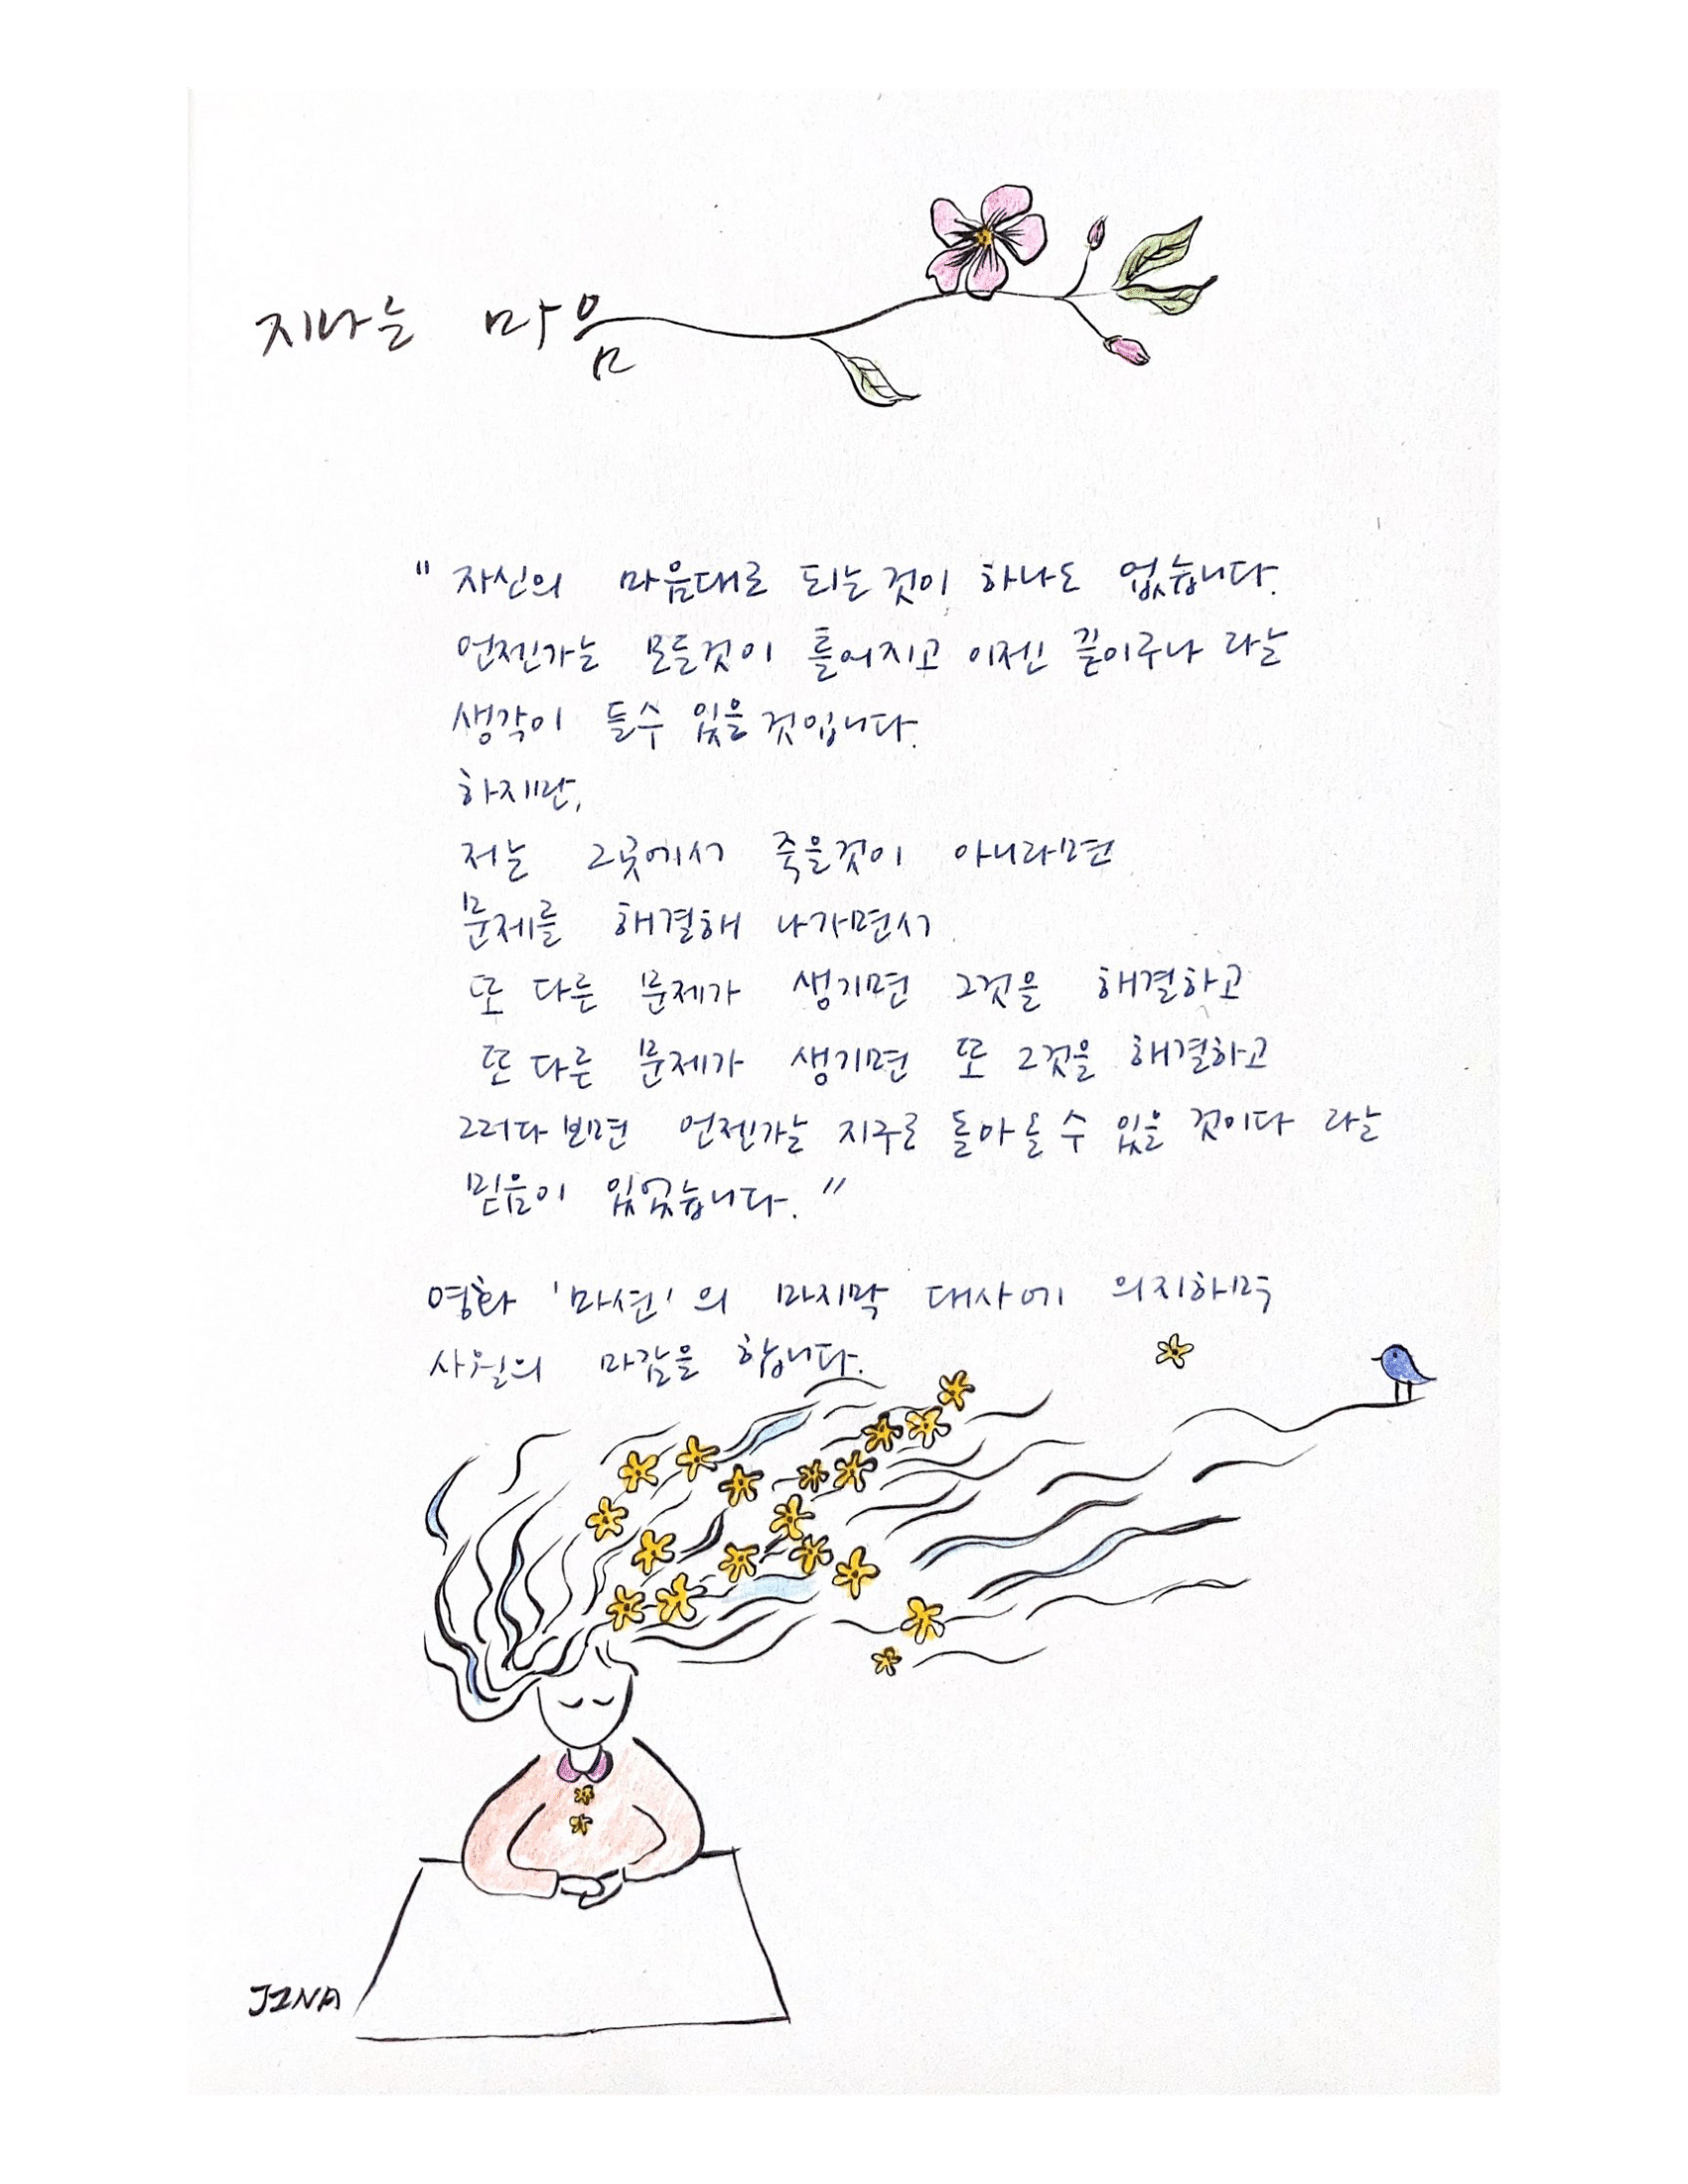 지나는 마음
" 자신의 마음대로 되는것이 하나도 없습니다.
언젠가는 모든것이 틀어지고 이젠 끝이구나 라는
생각이 들수 있을것입니다.
하지만,
저는 그곳에서 죽을것이 아니라면
문제를 해결해 나가면서
또 다른 문제가 생기면 그것을 해결하고
또 다른 문제가 생기면 또 그것을 해결하고
그러다보면 언젠가는 지구로 돌아올 수 있을 것이다 라는
믿음이 있었습니다."
영화 '마션'의 마지막 대사에 의지하며
사월의 마감을 합니다.
JINA